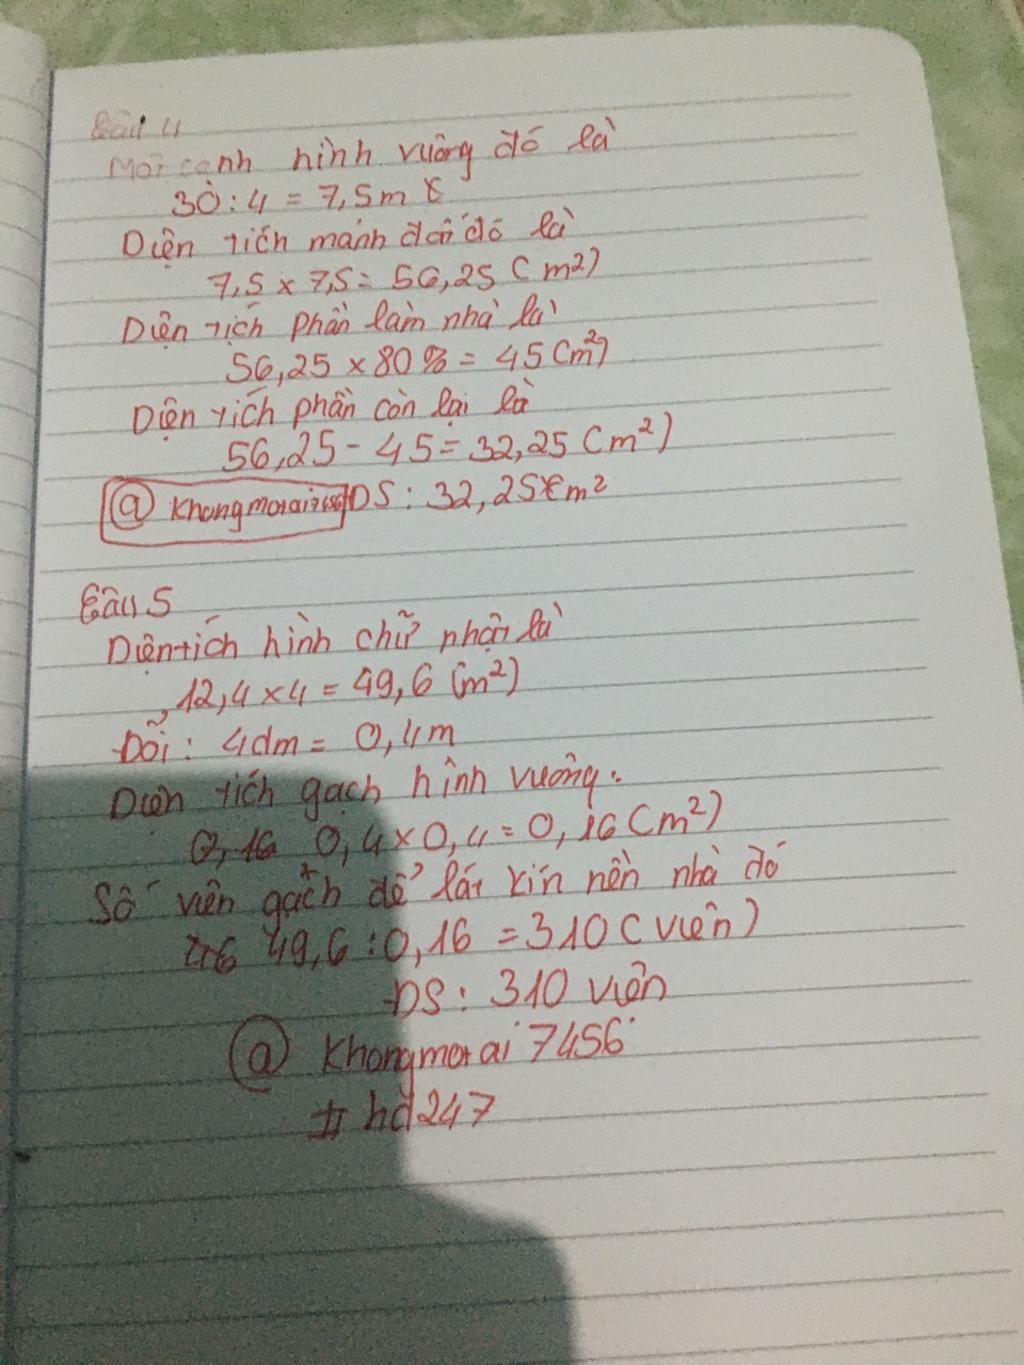 Câu 4
Mỗi cạnh hình vuông đó là
30 : 4 = 7,5m
Diện tích mảnh đất đó là
7,5 x 7,5 = 56,25 (m²)
Diện tích phần làm nhà là
56,25 x 80% = 45 (m²)
Diện tích phần còn lại là
56,25 - 45 = 32,25 (m²)
@ Khongmorai7456 ĐS : 32,25 m²
Câu 5
Diện tích hình chữ nhật là
12,4 x 4 = 49,6 (m²)
Đổi : 4dm = 0,4m
Diện tích gạch hình vuông :
0,16 0,4 x 0,4 = 0,16 (m²)
Số viên gạch để lát kín nền nhà đó
49,6 : 0,16 = 310 (viên)
ĐS : 310 viên
@ Khongmorai7456
# hd247